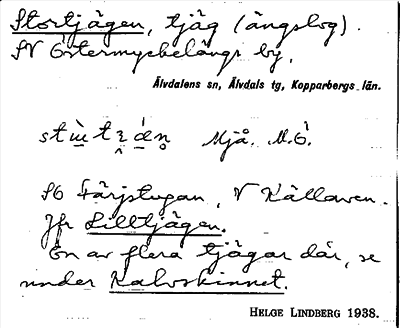 Stortjägen, tjäg (ängslog).
SV Östermyckelängs by.
Älvdalens sn, Älvdals tg, Kopparbergs län.
Mjå. M.Ö.
SO Färjstugan, V Källaren.
Jfr Lilltjägen.
En av flera tjägar där, se
under Kalvskinnet.
HELGE LINDBERG 1938.